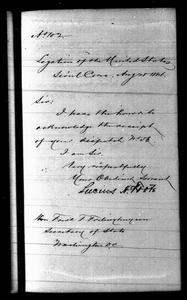 No 102.
Legation of the United States
Seoul Corea, Aug 1884.
Sir:
I have the honor to
acknowledge the receipt
of your despatch No
I am Sir,
Very respectfully
Your Obedient Servant
Lucius H. Foote
Hon Fredk T Frelinghuysen
Secretary of State
Washington D.C